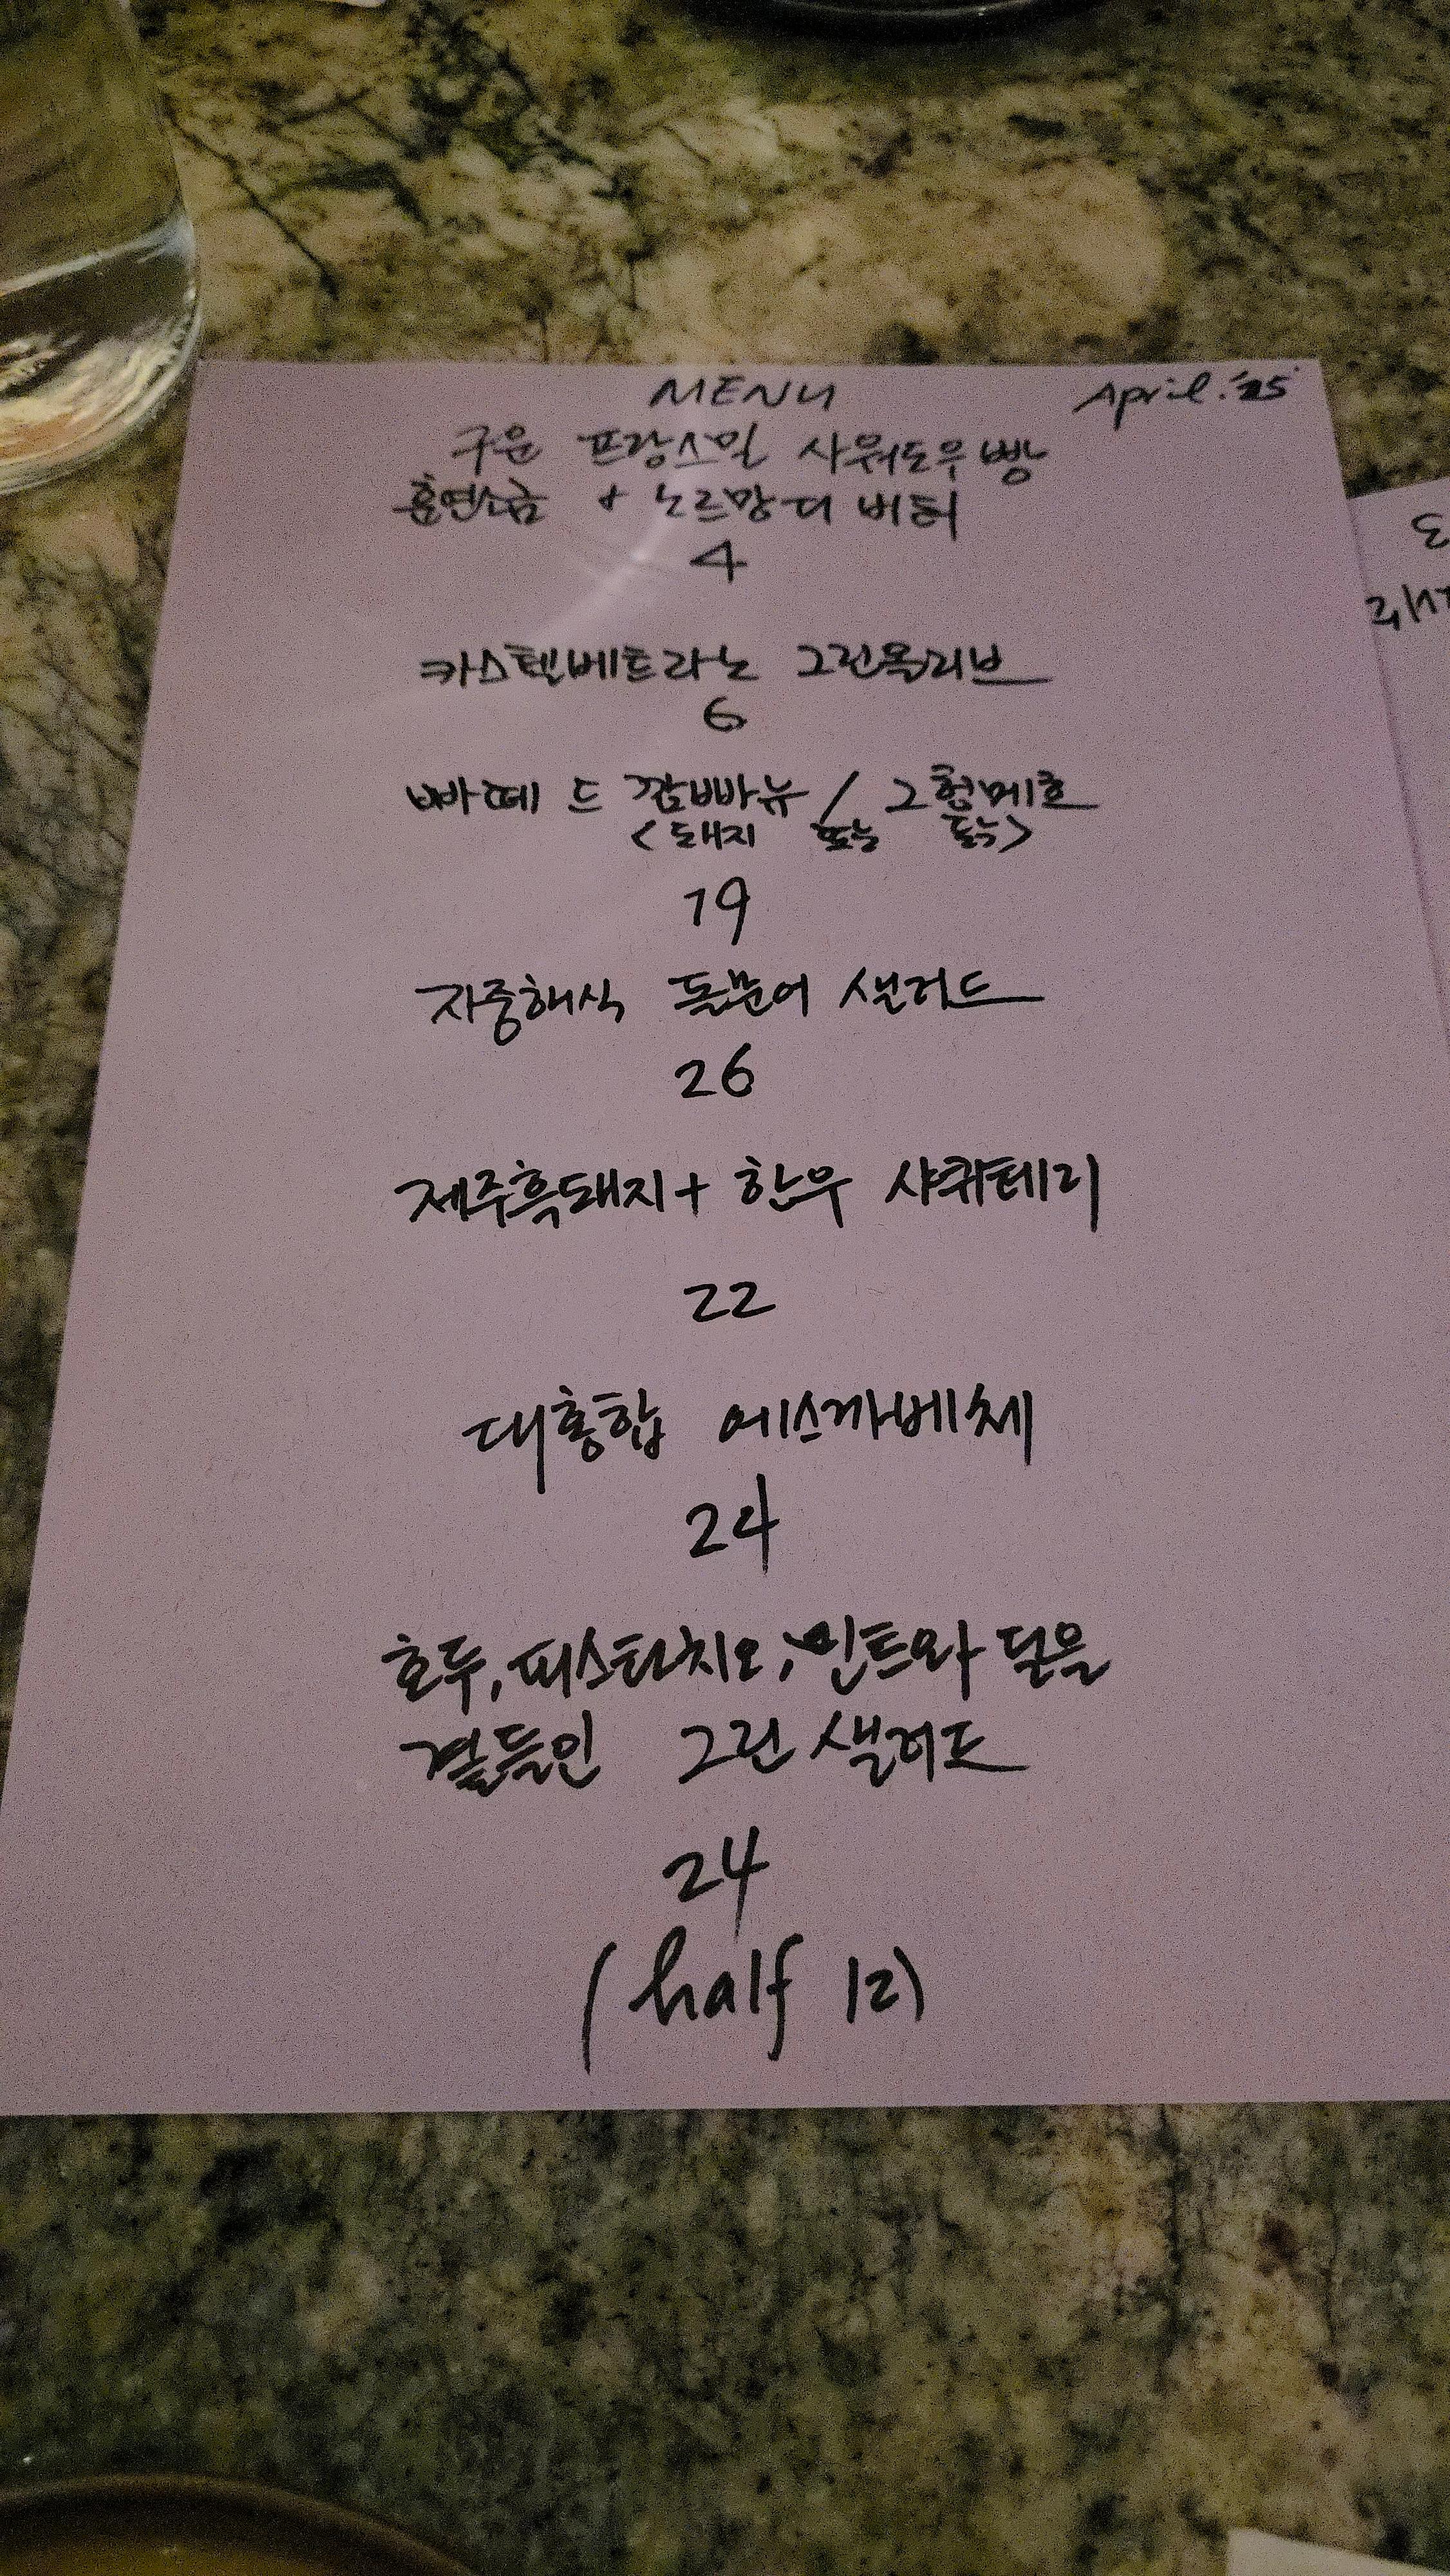 MENU
April. '25
구운 프랑스밀 사워도우 빵
훈연소금 + 노르망디 버터
4
카스텔베트라노 그린올리브
6
빠떼 드 깜빠뉴 / 그헝메흐
<돼지 또는 >
19
지중해식 돌문어 샐러드
26
제주흑돼지 + 한우 샤퀴테리
22
대홍합 에스까베체
24
호두, 피스타치오, 민트와 딜을
곁들인 그린 샐러드
24
(half 12)